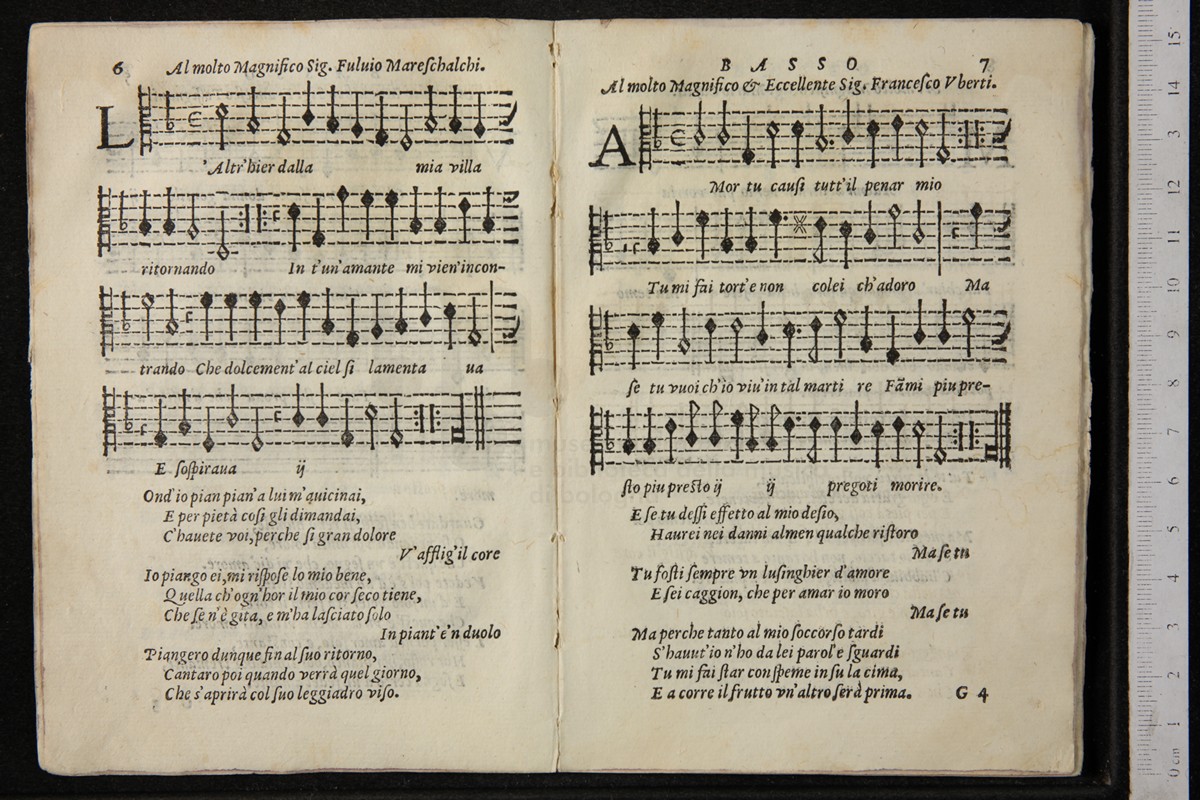 6
Al molto Magnifico Sig. Fuluio Mareſchalchi.
L
'Altr'hier dalla mia villa
ritornando In t'un'amante mi vien'incon-
trando Che dolcement'al ciel ſi lamenta ua
E ſoſpiraua ij
Ond'io pian pian'a lui m'auicinai,
E per pietà coſi gli dimandai,
C'hauete voi, perche ſi gran dolore
V'afflig'il core
Io piango ei, mi riſpoſe lo mio bene,
Quella ch'ogn'hor il mio cor ſeco tiene,
Che ſe n'è gita, e m'ha laſciato ſolo
In piant'e'n duolo
Piangero dunque fin al ſuo ritorno,
Cantaro poi quando verrà quel giorno,
Che s'aprirà col ſuo leggiadro viſo.
BASSO
7
Al molto Magnifico & Eccellente Sig. Franceſco Vberti.
A
Mor tu cauſi tutt'il penar mio
Tu mi fai tort'e non colei ch'adoro Ma
ſe tu vuoi ch'io viu'in tal marti re Fāmi piu pre-
ſto piu preſto ij ij pregoti morire.
E ſe tu deſſi effetto al mio deſio,
Haurei nei danni almen qualche riſtoro
Ma ſe tu
Tu foſti ſempre vn luſinghier d'amore
E ſei caggion, che per amar io moro
Ma ſe tu
Ma perche tanto al mio ſoccorſo tardi
S'hauut'io n'ho da lei parol'e ſguardi
Tu mi fai ſtar con ſpeme in ſu la cima,
E a corre il frutto vn'altro ſerà prima.
G 4